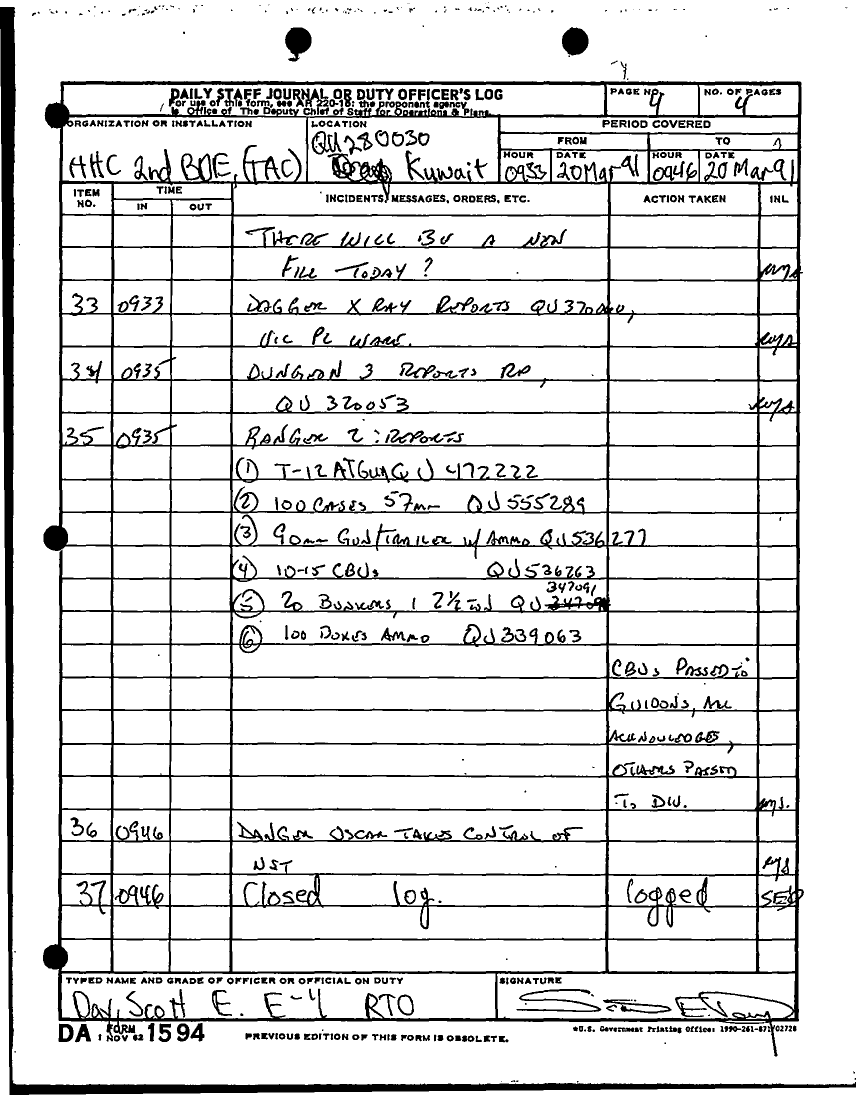 DAILY STAFF JOURNAL OR DUTY OFFICER'S LOG
For use of this form, see AR 220-15; the proponent agency
is Office of The Deputy Chief of Staff for Operations & Plans.
PAGE NO.
4
NO. OF PAGES
4
ORGANIZATION OR INSTALLATION
HHC 2nd BDE, (TAC)
LOCATION
QU280030
Kuwait
PERIOD COVERED
FROM TO
HOUR DATE HOUR DATE
0933 20Mar91 0946 20Mar91
ITEM NO. TIME IN OUT INCIDENTS, MESSAGES, ORDERS, ETC. ACTION TAKEN INL
THERE WILL BE A
FILL TODAY?
33 0933 DAGGER X RAY REPORTS
VIC PL
34 0935 DUNGEON 3 REPORTS RP,
QU 320053
35 0935 RANGER 2 : REPORTS
① T-12 ATGUN QU 472222
② 100 CASES 57mm QU555289
③ 90mm GUN/TRAILER w/ AMMO QU536277
④ 10-15 CBUs QU536263
347091
⑤ 20 BUNKERS, 1 2½ TON QU
⑥ 100 BOXES AMMO QU339063
CBUs PASSED to
GUIDONS, ALL
ACKNOWLEDGES,
OTHERS PASSED
To DIV.
36 0946 DANGER OSCAR TAKES CONTROL OF
NST
37 0946 Closed log. logged
TYPED NAME AND GRADE OF OFFICER OR OFFICIAL ON DUTY
Day, Scott E. E-4 RTO
SIGNATURE
DA FORM 1594
1 NOV 62
PREVIOUS EDITION OF THIS FORM IS OBSOLETE.
*U.S. Government Printing Office: 1990-261-871/02728